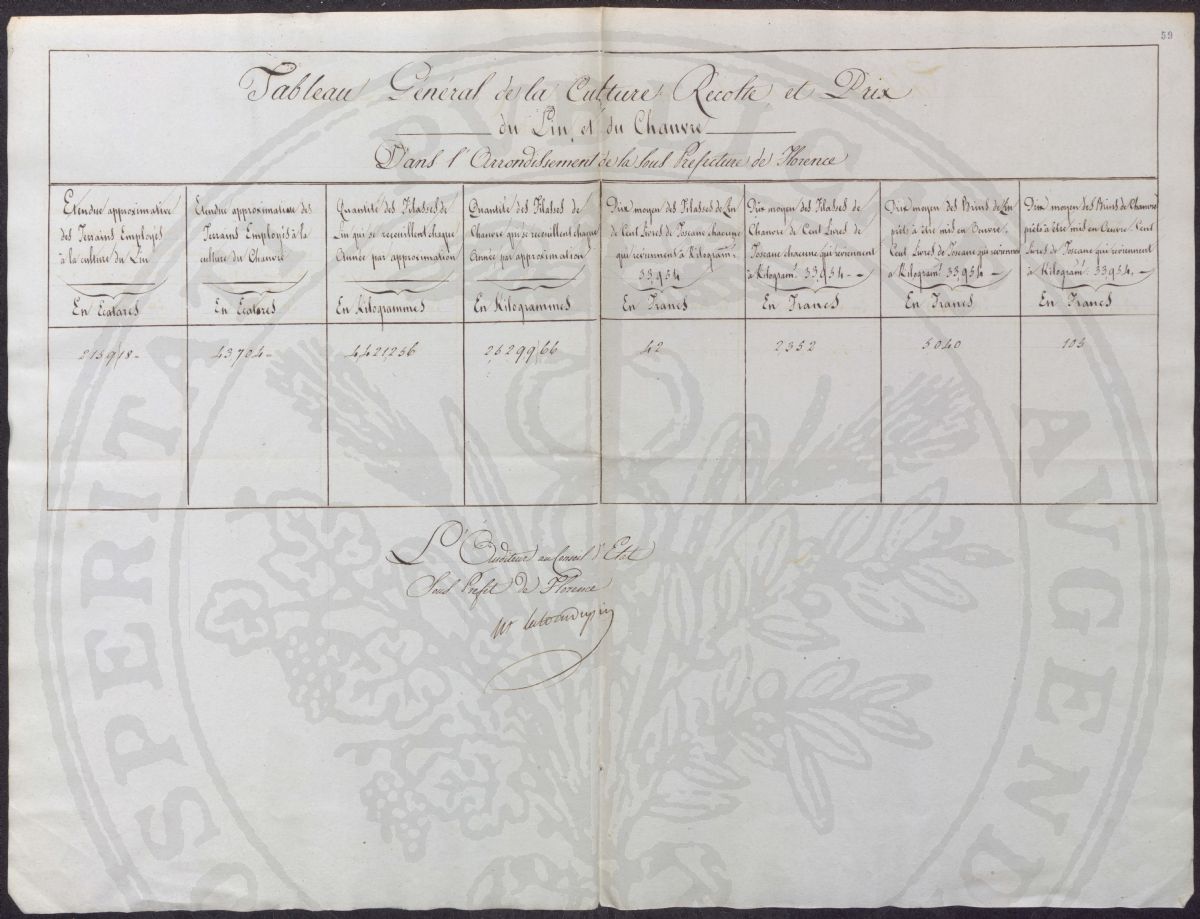 59
Tableau Général de la Culture Récolte et Prix
du Lin et du Chanvre
Dans l'Arrondissement de la Sous Prefecture de Florence
Etendue approximative
des Terrains Employés
à la culture du Lin
En Ecatares
215918
Etendue approximative des
Terrains Employés à la
culture du Chanvre
En Ecatares
43704
Quantité des Filasses de
Lin qui se recueillent chaque
Année par approximation
En Kilogrammes
4421256
Quantité des Filasses de
Chanvre qui se recueillent chaque
Année par approximation
En Kilogrammes
2529966
Prix moyen des Filasses de Lin
de Cent Livres de Toscane chacune
qui reviennent à Kilogram.
33,954
En Francs
42
Prix moyen des Filasses de
Chanvre de Cent Livres de
Toscane chacune qui reviennent
à Kilogram. 33,954
En Francs
2352
Prix moyen des Brins de Lin
prêts à être mis en Oeuvre.
Cent Livres de Toscane qui reviennent
à Kilogram. 33,954
En Francs
5040
Prix moyen des Brins de Chanvre
prêts à être mis en Oeuvre. Cent
Livres de Toscane qui reviennent
à Kilogram. 33,954
En Francs
105
L'Auditeur au Conseil d'Etat
Sous Prefet de Florence
PROSPERITATI PUBLICAE AUGENDAE